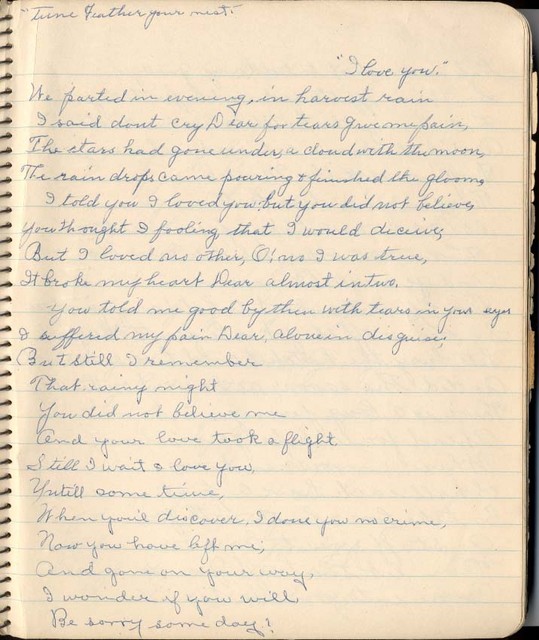 "Tune Feather your nest."
"I love you."
We parted in evening, in harvest rain
I said dont cry Dear for tears give me pain,
The stars had gone under, a cloud with the moon,
The rain drops came pouring & finished the gloom,
I told you I loved you, but you did not believe,
You thought I fooling that I would deceive,
But I loved no other, O! no I was true,
It broke my heart Dear almost in two.
You told me good by then with tears in your eyes
I suffered my pain Dear, alone in disguise,
But still I remember
That rainy night
You did not believe me
And your love took a flight
Still I wait & love you,
Untill some time,
When you'll discover, I done you no crime,
Now you have left me,
And gone on your way,
I wonder if you will
Be sorry some day?